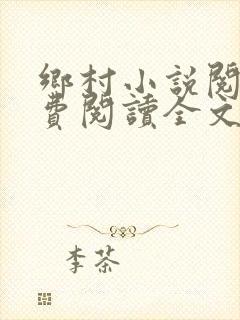 鄉村小說閱
費閱讀全文
李茶